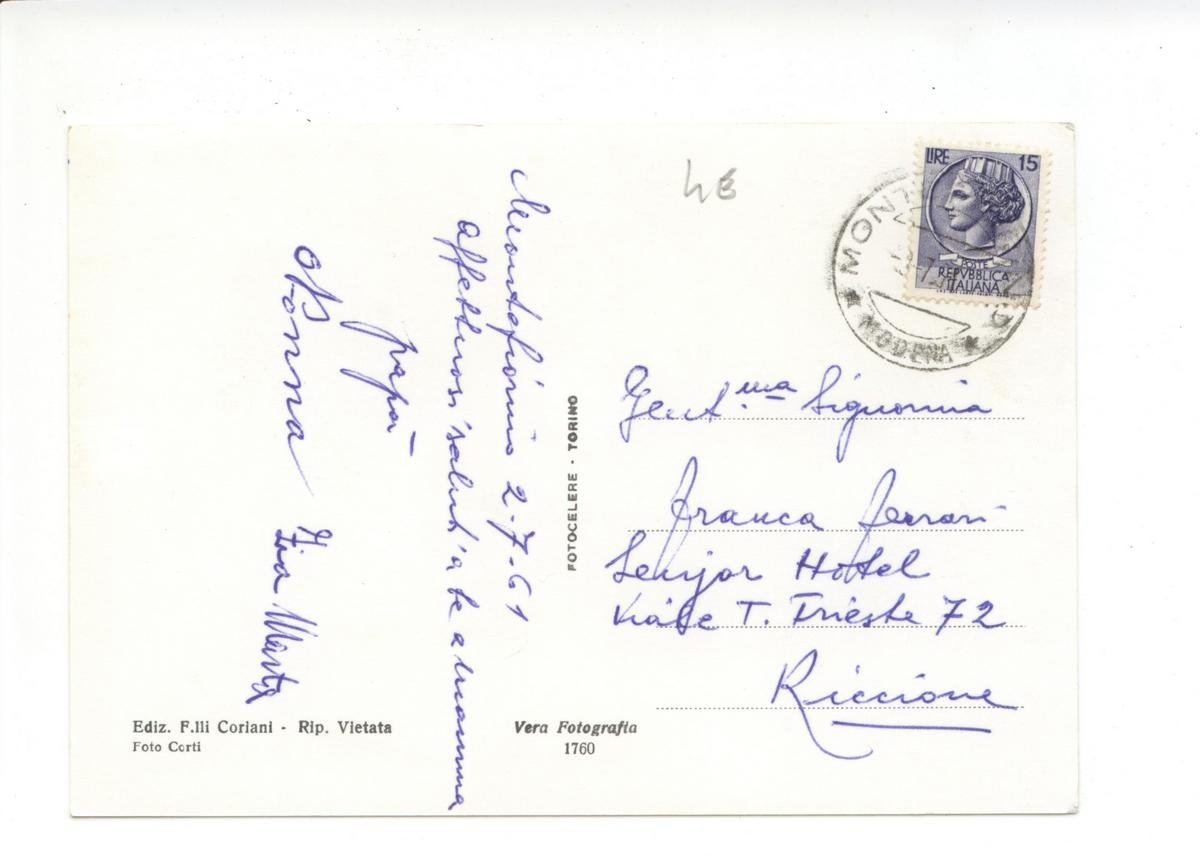 Montefiorino 2-7-61
affettuosi saluti a te a mamma
papà
Nonna Zia Marta
Ediz. F.lli Coriani - Rip. Vietata
Foto Corti
FOTOCELERE - TORINO
Vera Fotografia
1760
LIRE 15
POSTE
REPVBBLICA
ITALIANA
MODENA
Gent.ma Signorina
Franca Ferrari
Senjor Hotel
Viale T. Trieste 72
Riccione